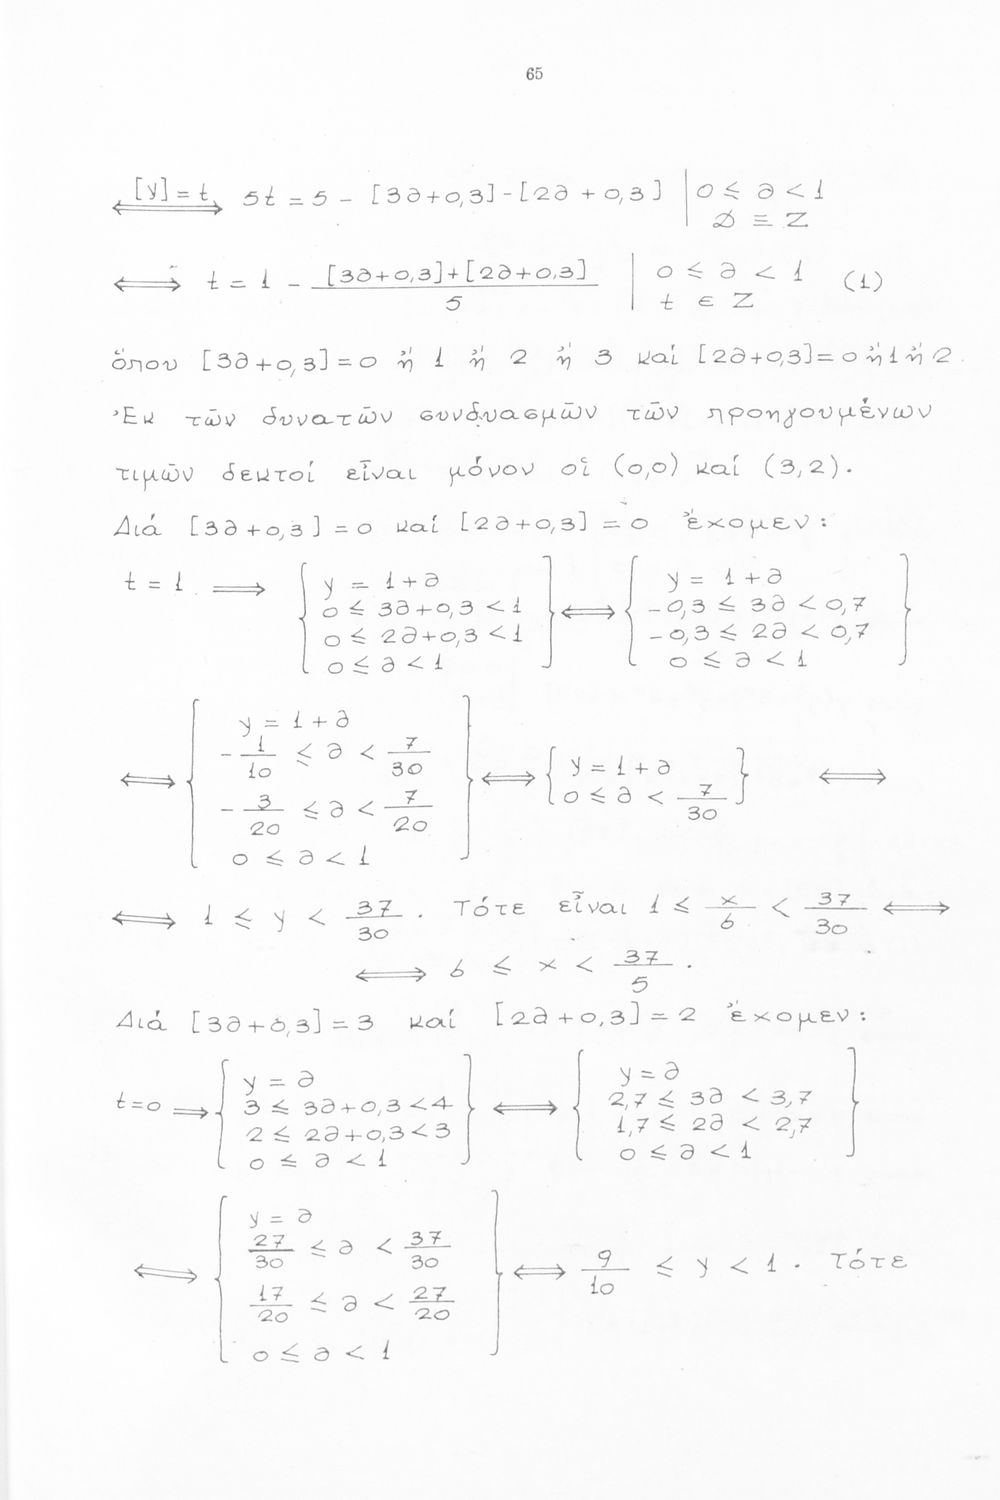 65
⟺ [y]=t 5t = 5 - [3∂+0,3]-[2∂+0,3] | 0 ≤ ∂ < 1
∅ ≡ Z
⟺ t = 1 - ([3∂+0,3]+[2∂+0,3])/5 | 0 ≤ ∂ < 1 (1)
t ∈ Z
ὅπου [3∂+0,3]=0 ἤ 1 ἤ 2 ἤ 3 καί [2∂+0,3]=0 ἤ 1 ἤ 2.
Ἐκ τῶν δυνατῶν συνδυασμῶν τῶν προηγουμένων
τιμῶν δεκτοί εἶναι μόνον οἱ (0,0) καί (3,2).
Διά [3∂+0,3]=0 καί [2∂+0,3]=0 ἔχομεν:
t = 1 ⟹ { y = 1+∂ } ⟺ { y = 1+∂ }
0 ≤ 3∂+0,3 < 1 -0,3 ≤ 3∂ < 0,7
0 ≤ 2∂+0,3 < 1 -0,3 ≤ 2∂ < 0,7
0 ≤ ∂ < 1 0 ≤ ∂ < 1
⟺ { y = 1+∂
-1/10 ≤ ∂ < 7/30
-3/20 ≤ ∂ < 7/20
0 ≤ ∂ < 1 } ⟺ { y = 1+∂
0 ≤ ∂ < 7/30 } ⟺
⟺ 1 ≤ y < 37/30 . Τότε εἶναι 1 ≤ x/6 < 37/30 ⟺
⟺ 6 ≤ x < 37/5 .
Διά [3∂+0,3]=3 καί [2∂+0,3]=2 ἔχομεν:
t=0 ⟹ { y = ∂ } ⟺ { y = ∂ }
3 ≤ 3∂+0,3 < 4 2,7 ≤ 3∂ < 3,7
2 ≤ 2∂+0,3 < 3 1,7 ≤ 2∂ < 2,7
0 ≤ ∂ < 1 0 ≤ ∂ < 1
⟺ { y = ∂
27/30 ≤ ∂ < 37/30
17/20 ≤ ∂ < 27/20
0 ≤ ∂ < 1 } ⟺ 9/10 ≤ y < 1 . Τότε